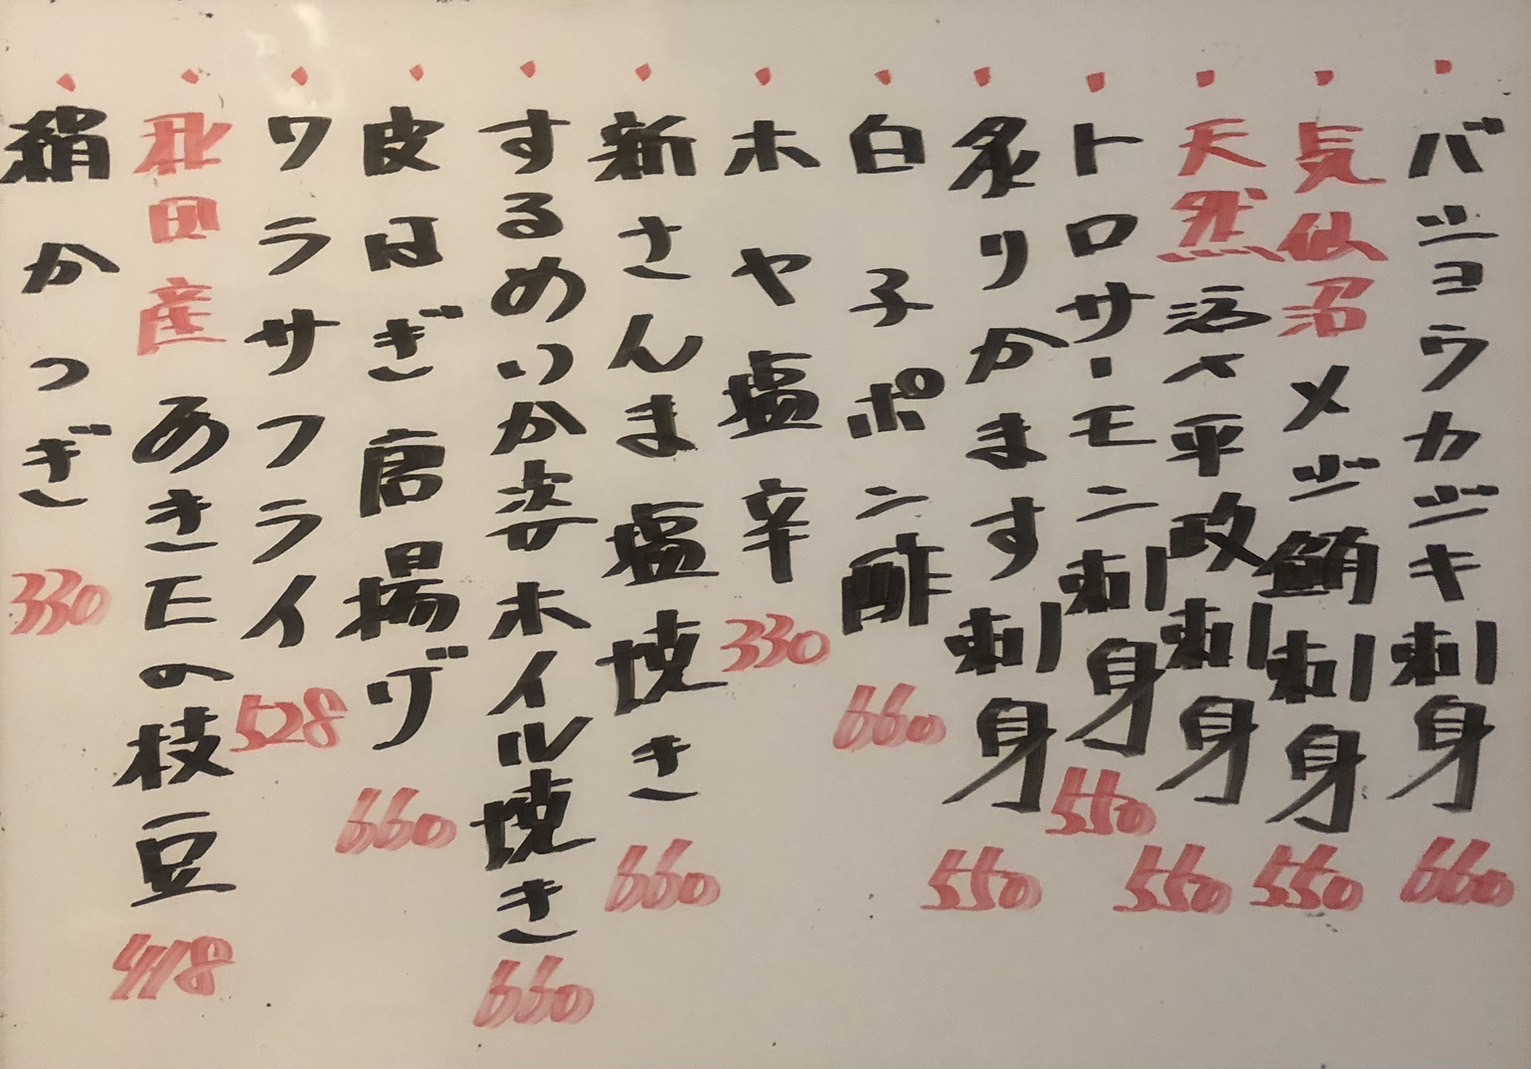 バショウカジキ刺身 660
気仙沼メジ鮪刺身 550
天然活〆平政刺身 550
トロサーモン刺身 550
炙りかます刺身 550
白子ポン酢 660
ホヤ塩辛 330
新さんま塩焼き 660
するめいか姿ホイル焼き 660
皮はぎ唐揚げ 660
ワラサフライ 528
秋田産 あきたの枝豆 418
絹かつぎ 330